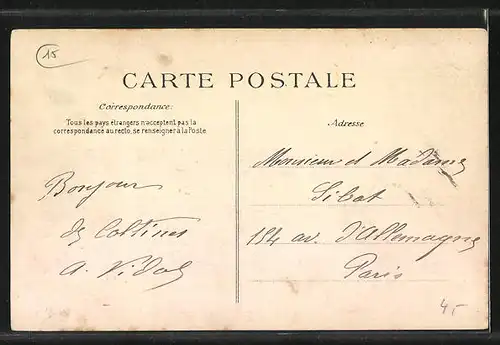 15
CARTE POSTALE
Correspondance:
Tous les pays étrangers n'acceptent pas la
correspondance au recto, se renseigner à la Poste
Adresse
Bonjour
A. Vidal
Monsieur et Madame
Sibat
154 av. d'Allemagne
Paris
4,-